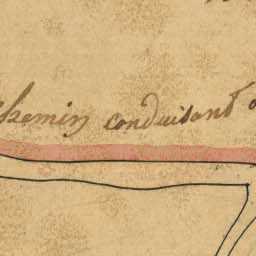 Chemin conduisant